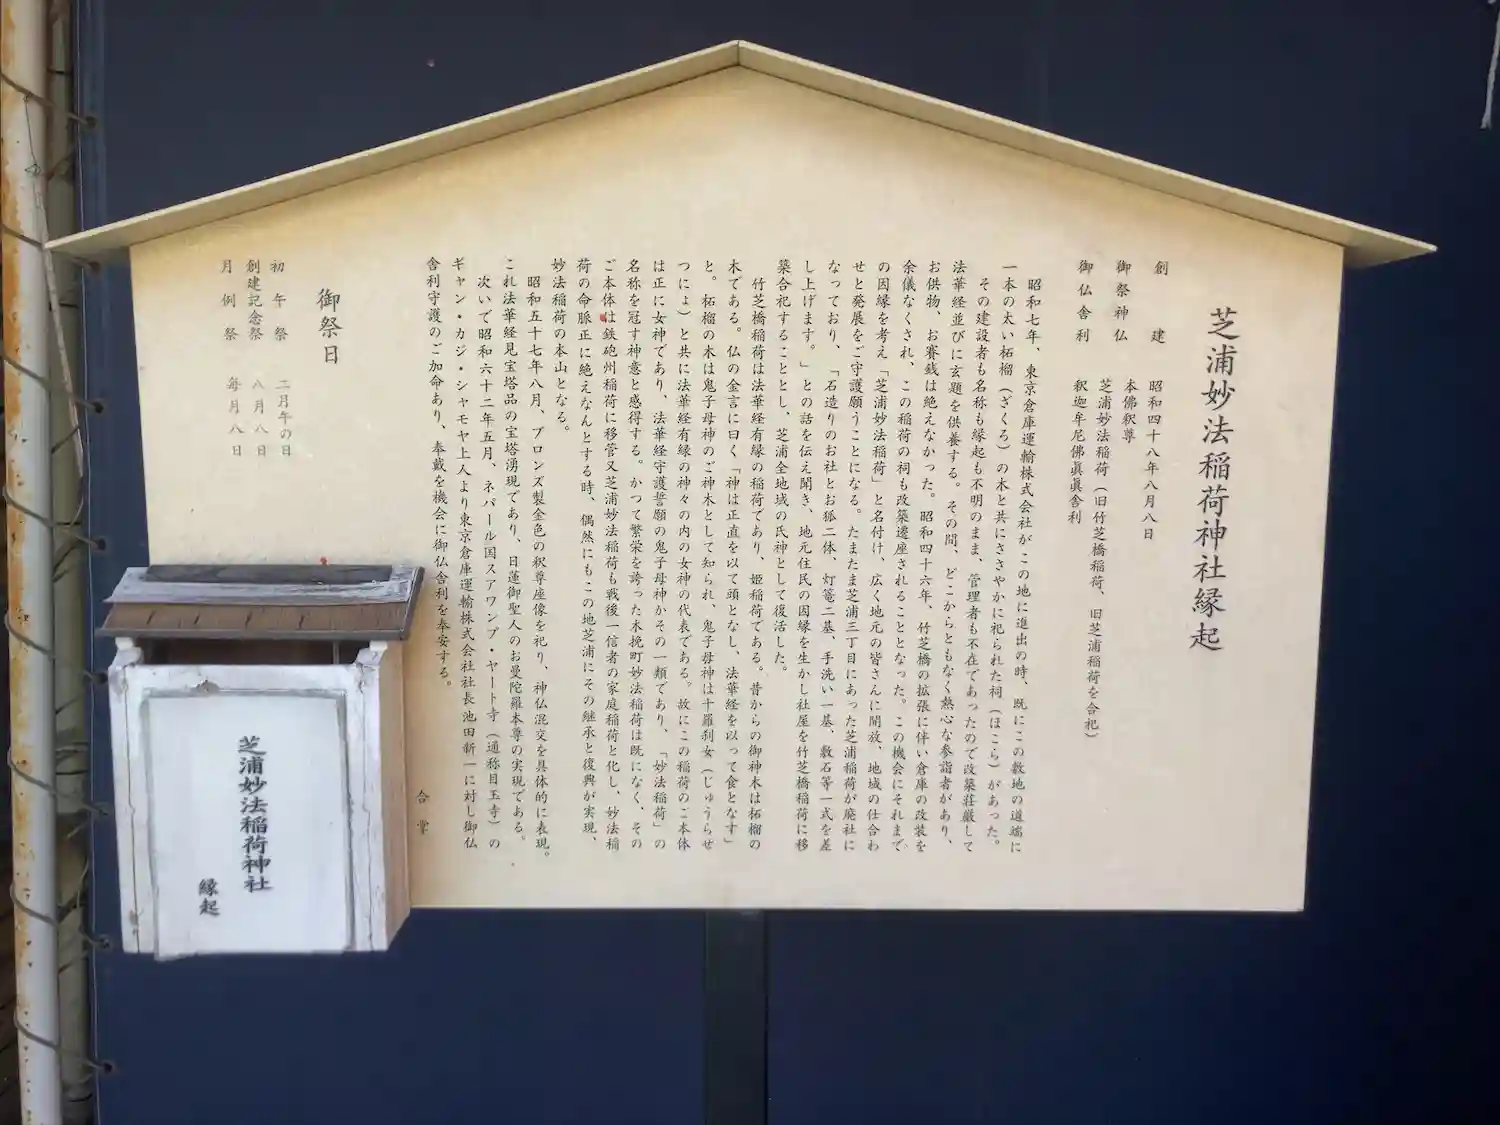 芝浦妙法稲荷神社縁起
創建 昭和四十八年八月八日
御祭神仏 本佛釈尊
芝浦妙法稲荷(旧竹芝橋稲荷、旧芝浦稲荷を合祀)
御仏舎利 釈迦牟尼佛眞眞舎利
昭和七年、東京倉庫運輸株式会社がこの地に進出の時、既にこの敷地の道端に
一本の太い柘榴(ざくろ)の木と共にささやかに祀られた祠(ほこら)があった。
その建設者も名称も縁起も不明のまま、管理者も不在であったので改築荘厳して
法華経並びに玄題を供養する。その間、どこからともなく熱心な参詣者があり、
お供物、お賽銭は絶えなかった。昭和四十六年、竹芝橋の拡張に伴い倉庫の改装を
余儀なくされ、この稲荷の祠も改築遷座されることとなった。この機会にそれまで
の因縁を考え「芝浦妙法稲荷」と名付け、広く地元の皆さんに開放、地域の仕合わ
せと発展をご守護願うことになる。たまたま芝浦三丁目にあった芝浦稲荷が廃社に
なっており、「石造りのお社とお狐二体、灯篭二基、手洗い一基、敷石等一式を差
し上げます。」との話を伝え聞き、地元住民の因縁を生かし社屋を竹芝橋稲荷に移
築合祀することとし、芝浦全地域の氏神として復活した。
竹芝橋稲荷は法華経有縁の稲荷であり、姫稲荷である。昔からの御神木は柘榴の
木である。仏の金言に曰く「神は正直を以て頭となし、法華経を以って食となす」
と。柘榴の木は鬼子母神のご神木として知られ、鬼子母神は十羅刹女(じゅうらせ
つにょ)と共に法華経有縁の神々の内の女神の代表である。故にこの稲荷のご本体
は正に女神であり、法華経守護誓願の鬼子母神かその一類であり、「妙法稲荷」の
名称を冠す神意と感得する。かつて繁栄を誇った木挽町妙法稲荷は既になく、その
ご本体は鉄砲州稲荷に移管又芝浦妙法稲荷も戦後一信者の家庭稲荷と化し、妙法稲
荷の命脈正に絶えなんとする時、偶然にもこの地芝浦にその継承と復興が実現、
妙法稲荷の本山となる。
昭和五十七年八月、ブロンズ製金色の釈尊座像を祀り、神仏混交を具体的に表現。
これ法華経見宝塔品の宝塔湧現であり、日蓮御聖人のお曼陀羅本尊の実現である。
次いで昭和六十二年五月、ネパール国スアワンブ・ヤート寺(通称目玉寺)の
ギャン・カジ・シャモヤ上人より東京倉庫運輸株式会社社長池田新一に対し御仏
舎利守護のご加命あり、奉戴を機会に御仏舎利を奉安する。
合掌
御祭日
初午祭 二月午の日
創建記念祭 八月八日
月例祭 毎月八日
芝浦妙法稲荷神社
縁起